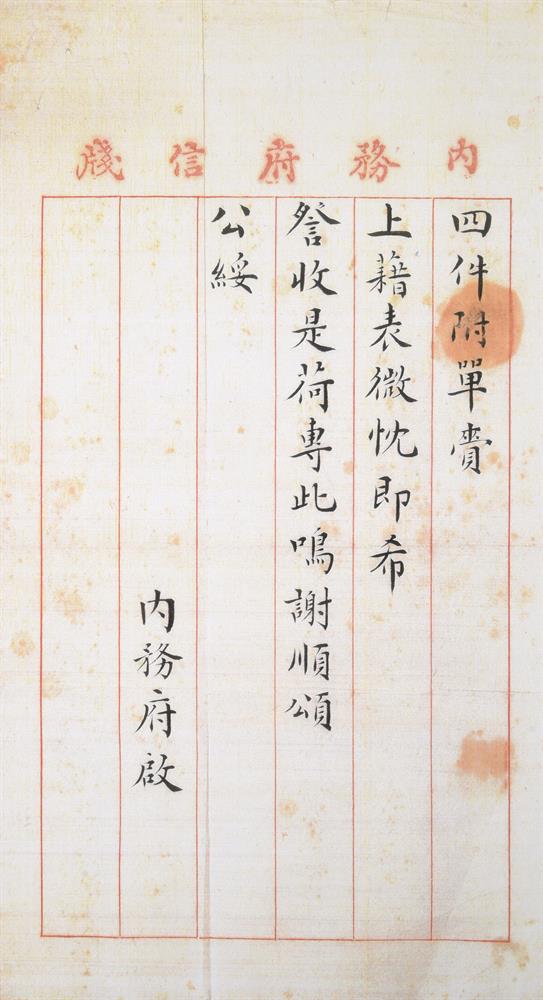 内務府信牋
四件附單賫
上藉表微忱即希
詧收是荷專此鳴謝順頌
公綏
内務府啟